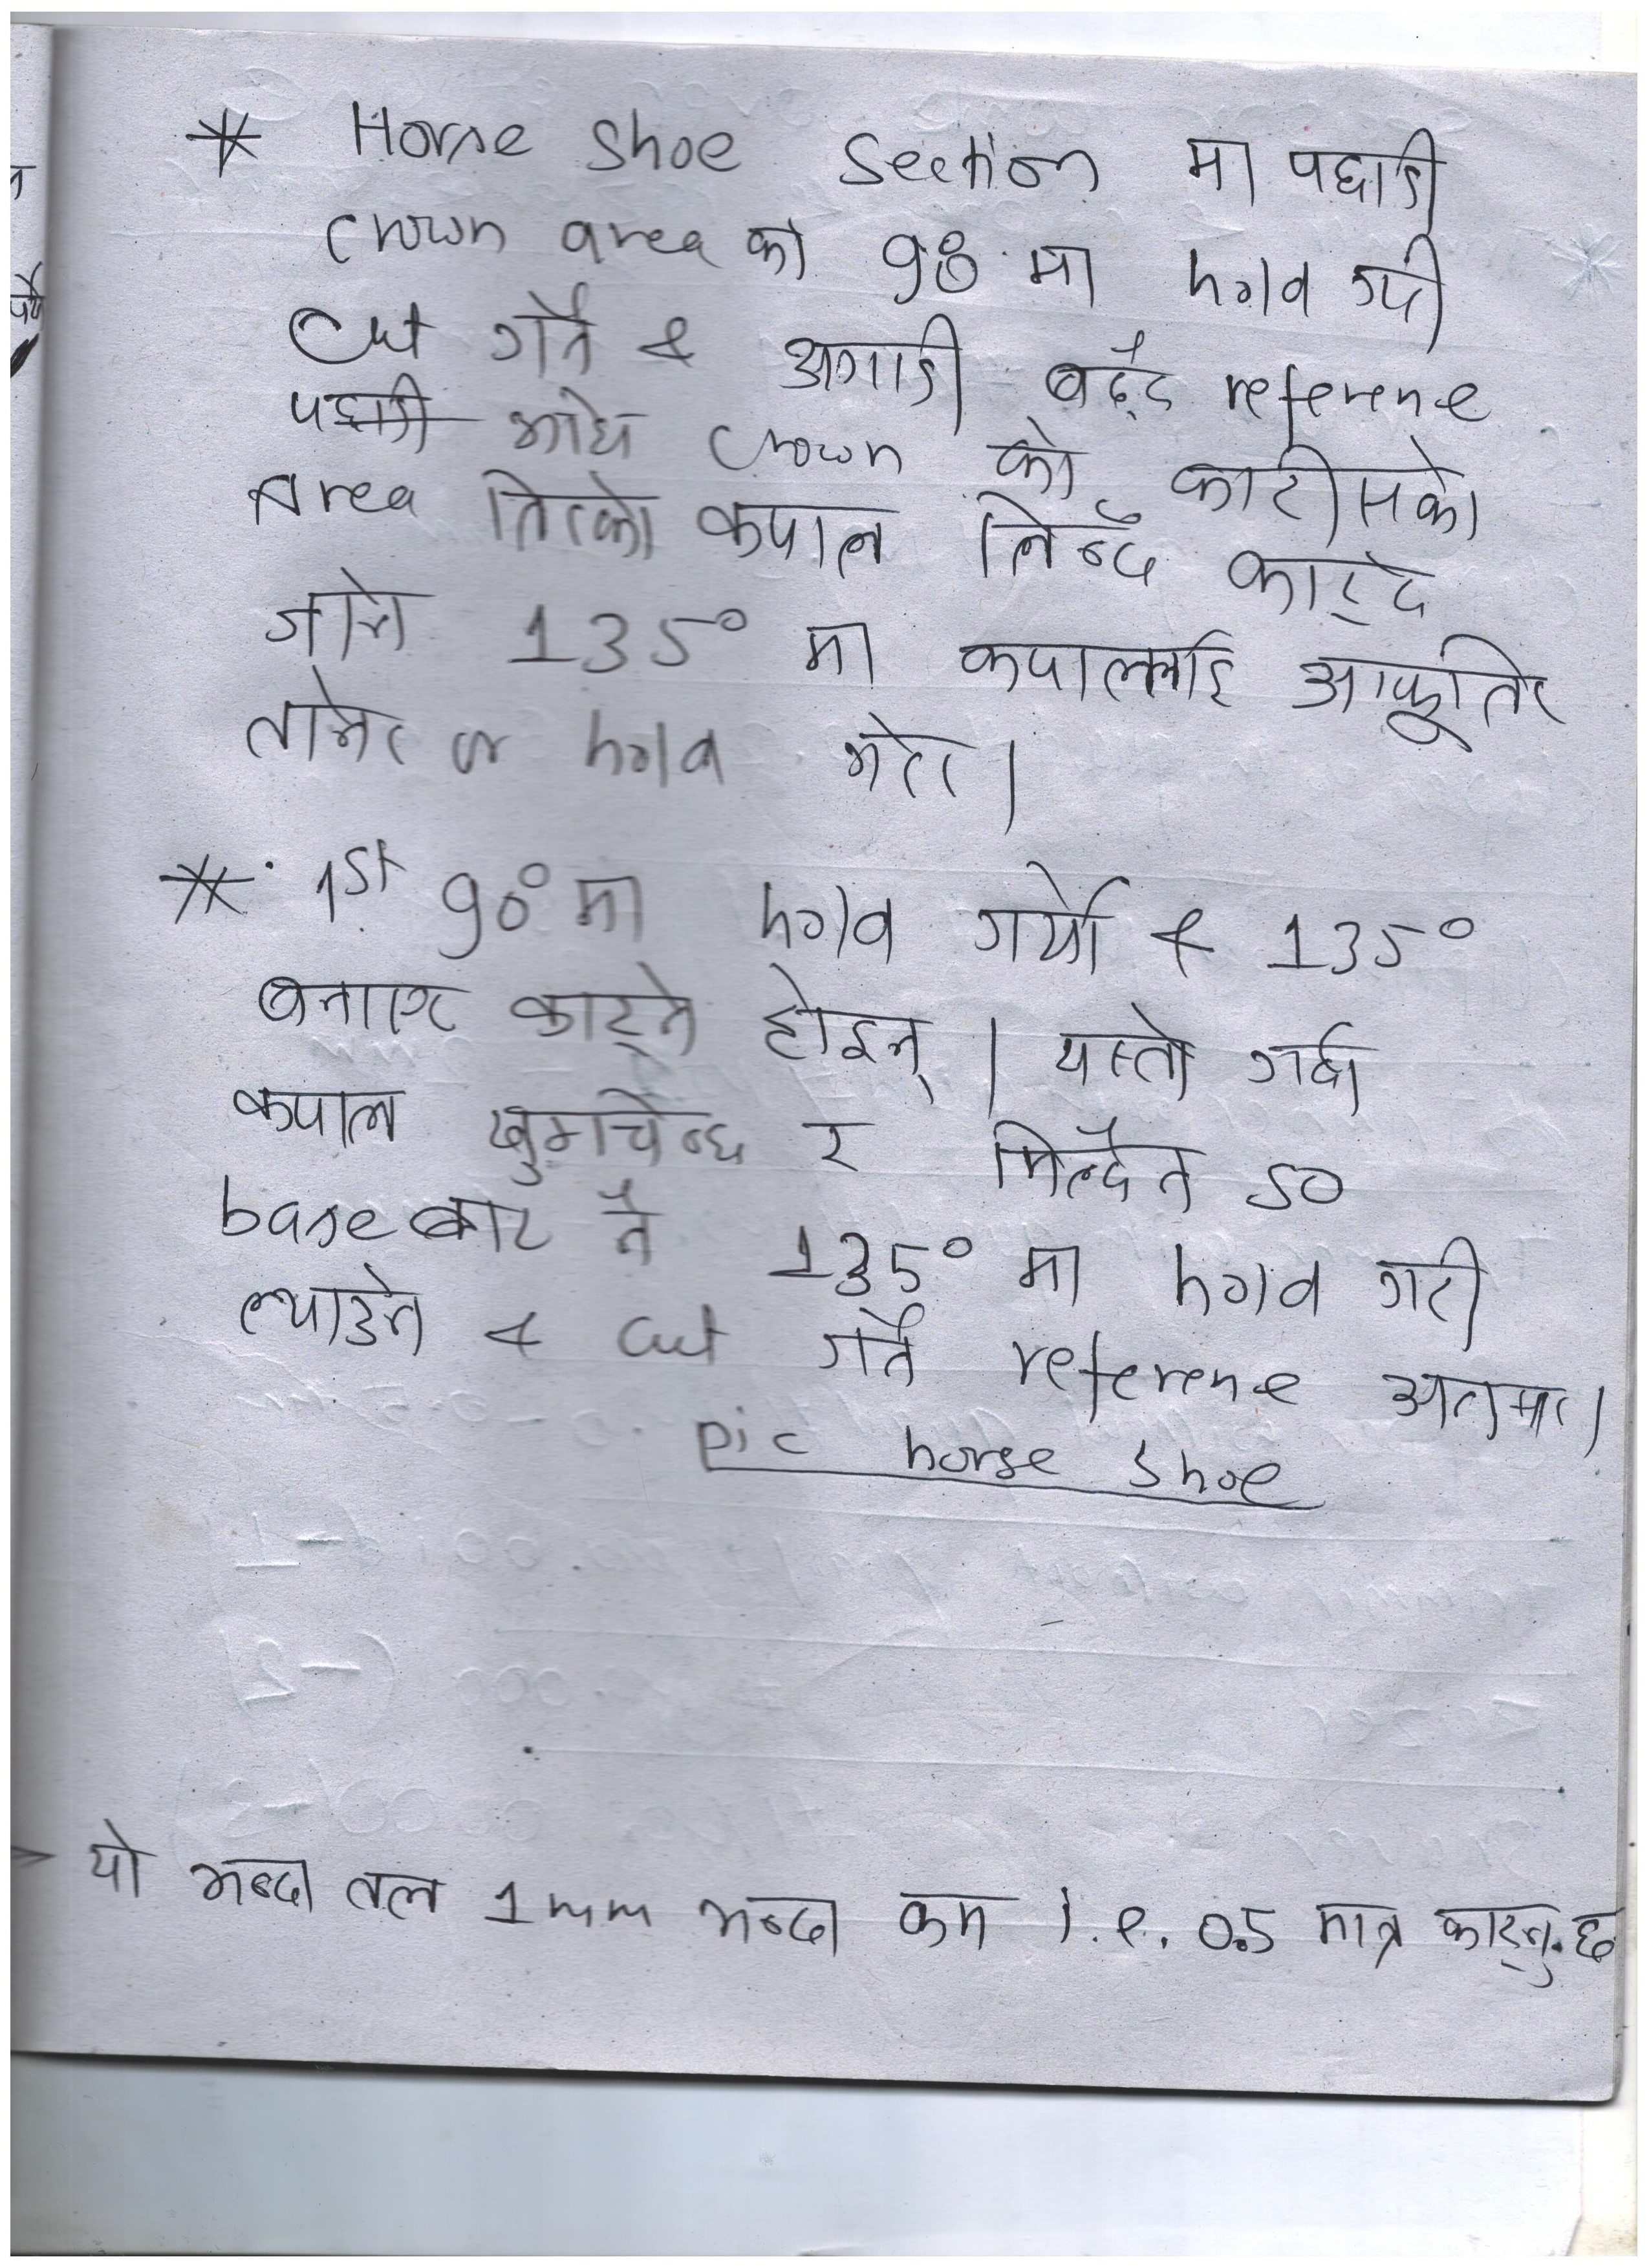 * Horse Shoe Section मा पछाडी
crown area को 90° मा hold गरी
cut गर्ने & अगाडी बढ्दै reference
पछाडी माथि crown को काटीसको
Area तिरको कपाल लिँदै काट्दै
जाने 135° मा कपाललाई आफूतिर
तानेर or hold गरेर।
* 1st 90° मा hold गर्यो & 135°
बनाएर काट्ने होइन् । यस्तो गर्दा
कपाल खुम्चिन्छ र मिल्दैन so
base बाट नै 135° मा hold गरी
ल्याउने & cut गर्ने reference अनुसार।
pic horse shoe
→ यो भन्दा तल 1mm भन्दा कम i.e. 0.5 मात्र काट्नु.छ